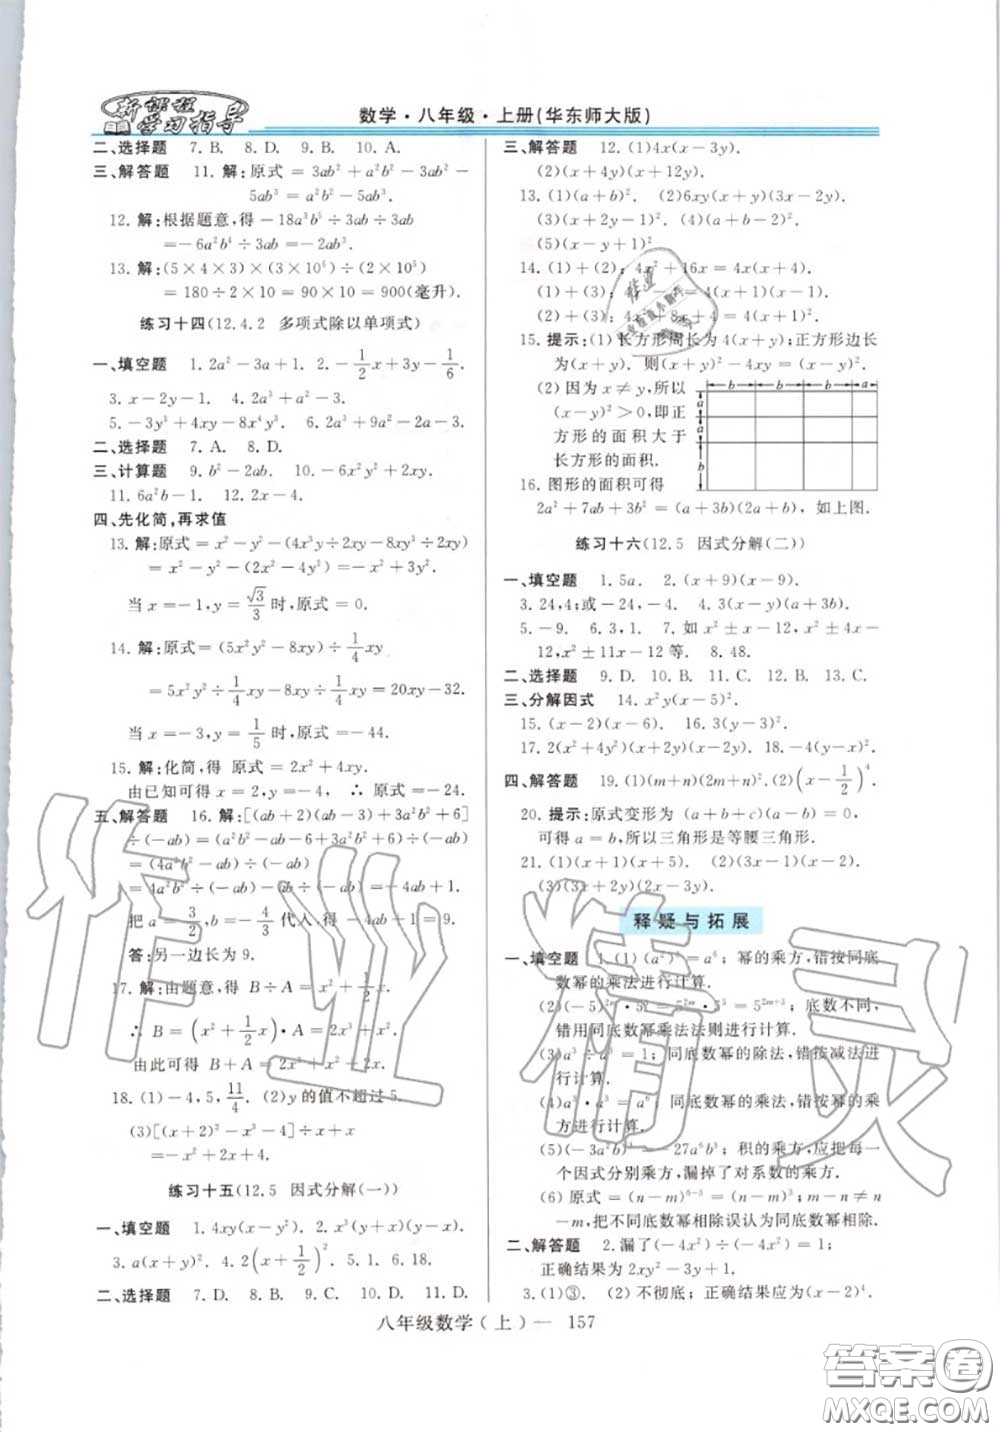 新课程
学习指导
数学·八年级·上册(华东师大版)
二、选择题 7. B. 8. D. 9. B. 10. A.
三、解答题 11. 解:原式 = 3ab² + a²b² - 3ab² -
5ab³ = a²b² - 5ab³.
12. 解:根据题意,得 -18a³b⁵ ÷ 3ab ÷ 3ab
= -6a²b⁴ ÷ 3ab = -2ab³.
13. 解:(5×4×3)×(3×10⁵)÷(2×10⁵)
= 180÷2×10 = 90×10 = 900(毫升).
练习十四(12.4.2 多项式除以单项式)
一、填空题 1. 2a² - 3a + 1. 2. -1/2x + 3y - 1/6.
3. x - 2y - 1. 4. 2a³ + a² - 3.
5. -3y³ + 4xy - 8x⁴y³. 6. 2a³ - 9a² - 2a - 3.
二、选择题 7. A. 8. D.
三、计算题 9. b² - 2ab. 10. -6x²y² + 2xy.
11. 6a²b - 1. 12. 2x - 4.
四、先化简,再求值
13. 解:原式 = x² - y² - (4x³y ÷ 2xy - 8xy³ ÷ 2xy)
= x² - y² - (2x² - 4y²) = -x² + 3y².
当 x = -1, y = √3/3 时,原式 = 0.
14. 解:原式 = (5x²y² - 8xy) ÷ 1/4xy
= 5x²y² ÷ 1/4xy - 8xy ÷ 1/4xy = 20xy - 32.
当 x = -3, y = 1/5 时,原式 = -44.
15. 解:化简,得 原式 = 2x² + 4xy.
由已知可得 x = 2, y = -4, ∴ 原式 = -24.
五、解答题 16. 解:[(ab+2)(ab-3)+3a²b²+6]
÷(-ab)=(a²b²-ab-6+3a²b²+6)÷(-ab)
=(4a²b²-ab)÷(-ab)
=4a²b²÷(-ab)-ab÷(-ab)=-4ab+1.
把 a = 3/2, b = -4/3 代入,得 -4ab+1=9.
答:另一边长为 9.
17. 解:由题意,得 B÷A = x² + 1/2x,
∴ B = (x² + 1/2x)·A = 2x³ + x².
由此可得 B + A = 2x³ + x² + 2x.
18. (1) -4, 5, 11/4. (2) y 的值不超过 5.
(3) [(x+2)² - x³ - 4] ÷ x
= -x² + x + 4.
练习十五(12.5 因式分解(一))
一、填空题 1. 4xy(x-y²). 2. x³(y+x)(y-x).
3. a(x+y)². 4. 2(x+1/2)². 5. 1. 6. 18.
二、选择题 7. D. 8. B. 9. C. 10. A. 11. D.
三、解答题 12. (1) 4x(x-3y).
(2)(x+4y)(x+12y).
13. (1)(a+b)². (2)6xy(x+y)(3x-2y).
(3)(x+2y-1)². (4)(a+b-2)².
(5)(x-y+1)².
14. (1)+(2): 4x²+16x=4x(x+4).
(1)+(3): 4x²-4=4(x+1)(x-1).
15. 提示:(1)长方形周长为 4(x+y);正方形边长
为(x+y). 则(x+y)²-4xy=(x-y)².
(2)因为 x≠y,所以
(x-y)²>0,即正
方形的面积大于
长方形的面积.
16. 图形的面积可得
2a²+7ab+3b²=(a+3b)(2a+b),如上图.
b b b a
a
a
b
练习十六(12.5 因式分解(二))
一、填空题 1. 5a. 2. (x+9)(x-9).
3. 24,4;或-24,-4. 4. 3(x-y)(a+3b).
5. -9. 6. 3,1. 7. 如 x²±x-12,x²±4x-
12,x²±11x-12 等. 8. 48.
二、选择题 9. D. 10. B. 11. C. 12. D. 13. C.
三、分解因式 14. x²y(x-5)².
15. (x-2)(x-6). 16. 3(y-3)².
17. 2(x²+4y²)(x+2y)(x-2y). 18. -4(y-x)².
四、解答题 19. (1)(m+n)(2m+n)². (2)(x-1/2)⁴.
20. 提示:原式变形为 (a+b+c)(a-b)=0,
可得 a=b,所以三角形是等腰三角形.
21. (1)(x+1)(x+5). (2)(3x-1)(x-2).
(3)(3x+2y)(2x-3y).
释疑与拓展
一、填空题 1. (1)(a²)³=a⁶;幂的乘方,错按同底
数幂的乘法进行计算.
(2)(-5)²ᵐ·5²ᵐ⁺³;底数不同,
错用同底数幂乘法法则进行计算.
(3)a³÷a³=1;同底数幂的除法,错按减法进
行计算.
(4)a³·a³=a⁶;同底数幂的乘法,错按幂的乘
方进行计算.
(5)(-3a²b)³=-27a⁶b³;积的乘方,应把每一
个因式分别乘方,漏掉了对系数的乘方.
(6)原式=(n-m)⁶⁻³=(n-m)³;m-n≠n
-m,把不同底数幂相除误认为同底数幂相除.
二、解答题 2. 漏了(-4x²)÷(-4x²)=1;
正确结果为 2xy²-3y+1.
3. (1)③. (2)不彻底;正确结果应为(x-2)⁴.
八年级数学(上)— 157
作业精灵
答案圈